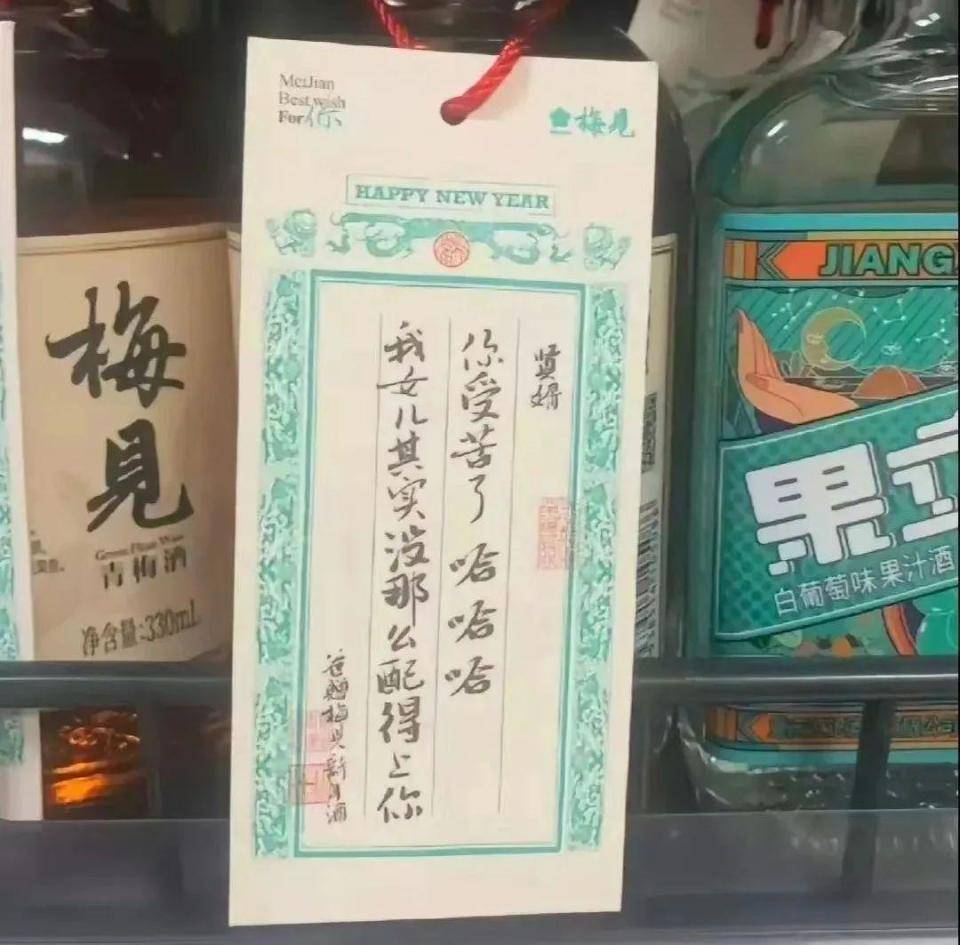 MeiJian
Best wish
For你
梅見
HAPPY NEW YEAR
贤婿
你受苦了哈哈哈
我女儿其实没那么配得上你
爸赠梅见新年酒
梅見
Green Plum Wine
青梅酒
净含量:330mL
JIANG
果立
白葡萄味果汁酒